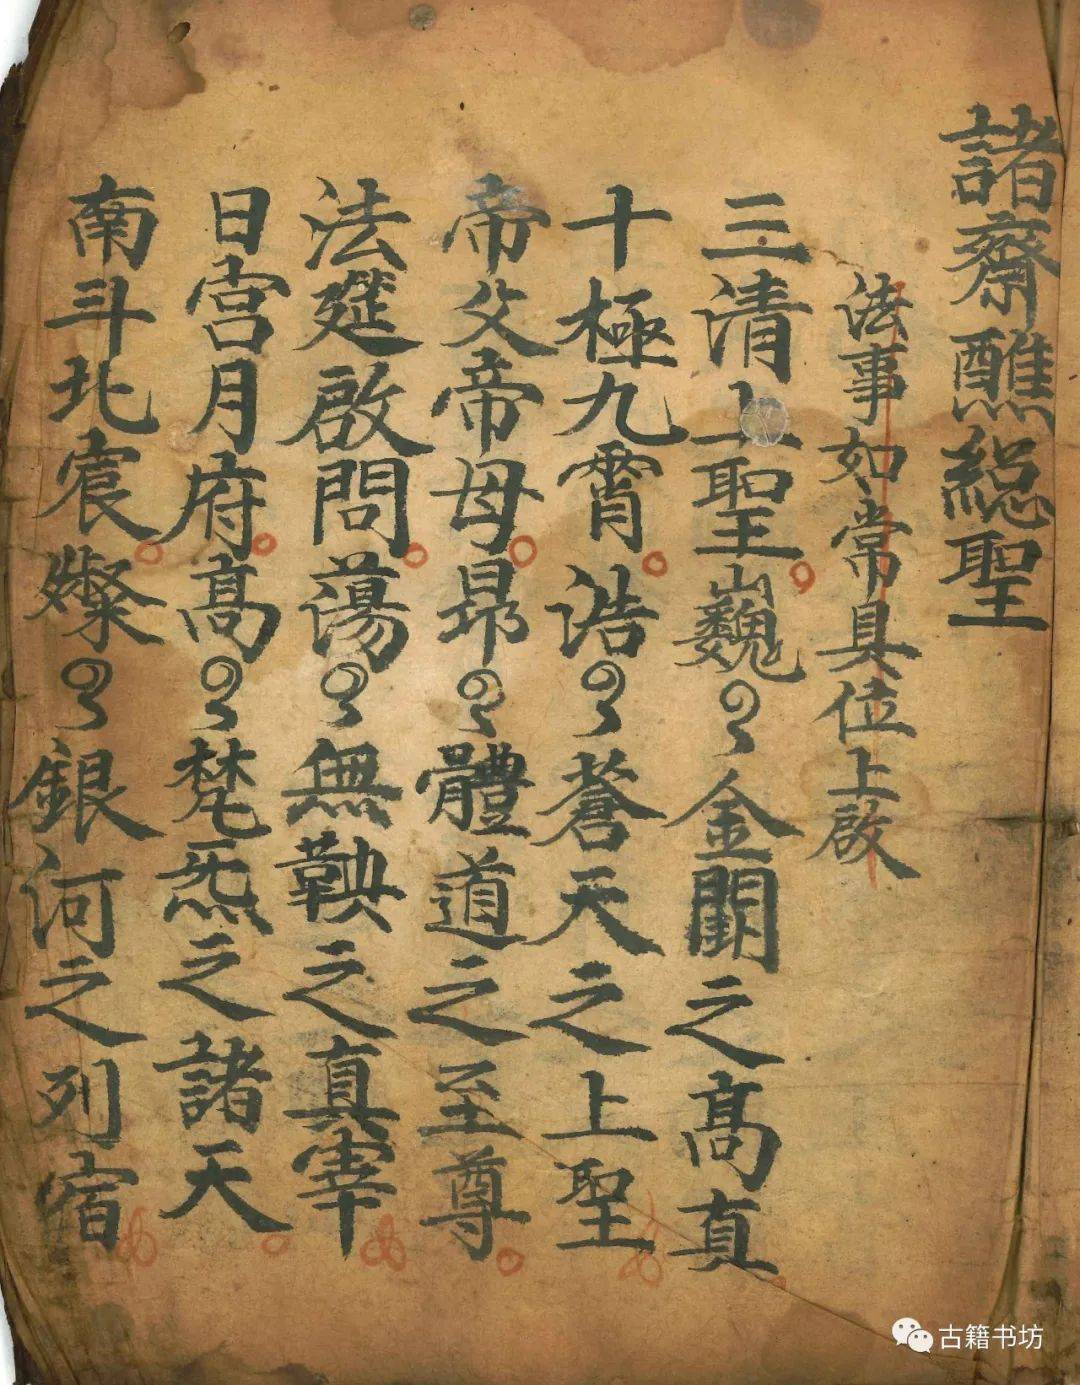 諸齋醮總聖
法事如常具位上啟
三清上聖巍々金闕之高真
十極九霄浩々蒼天之上聖
帝父帝母昻々體道之至尊
法筵啟問蕩々無鞅之真宰
日宮月府高々梵炁之諸天
南斗北宸燦々銀河之列宿
古籍书坊